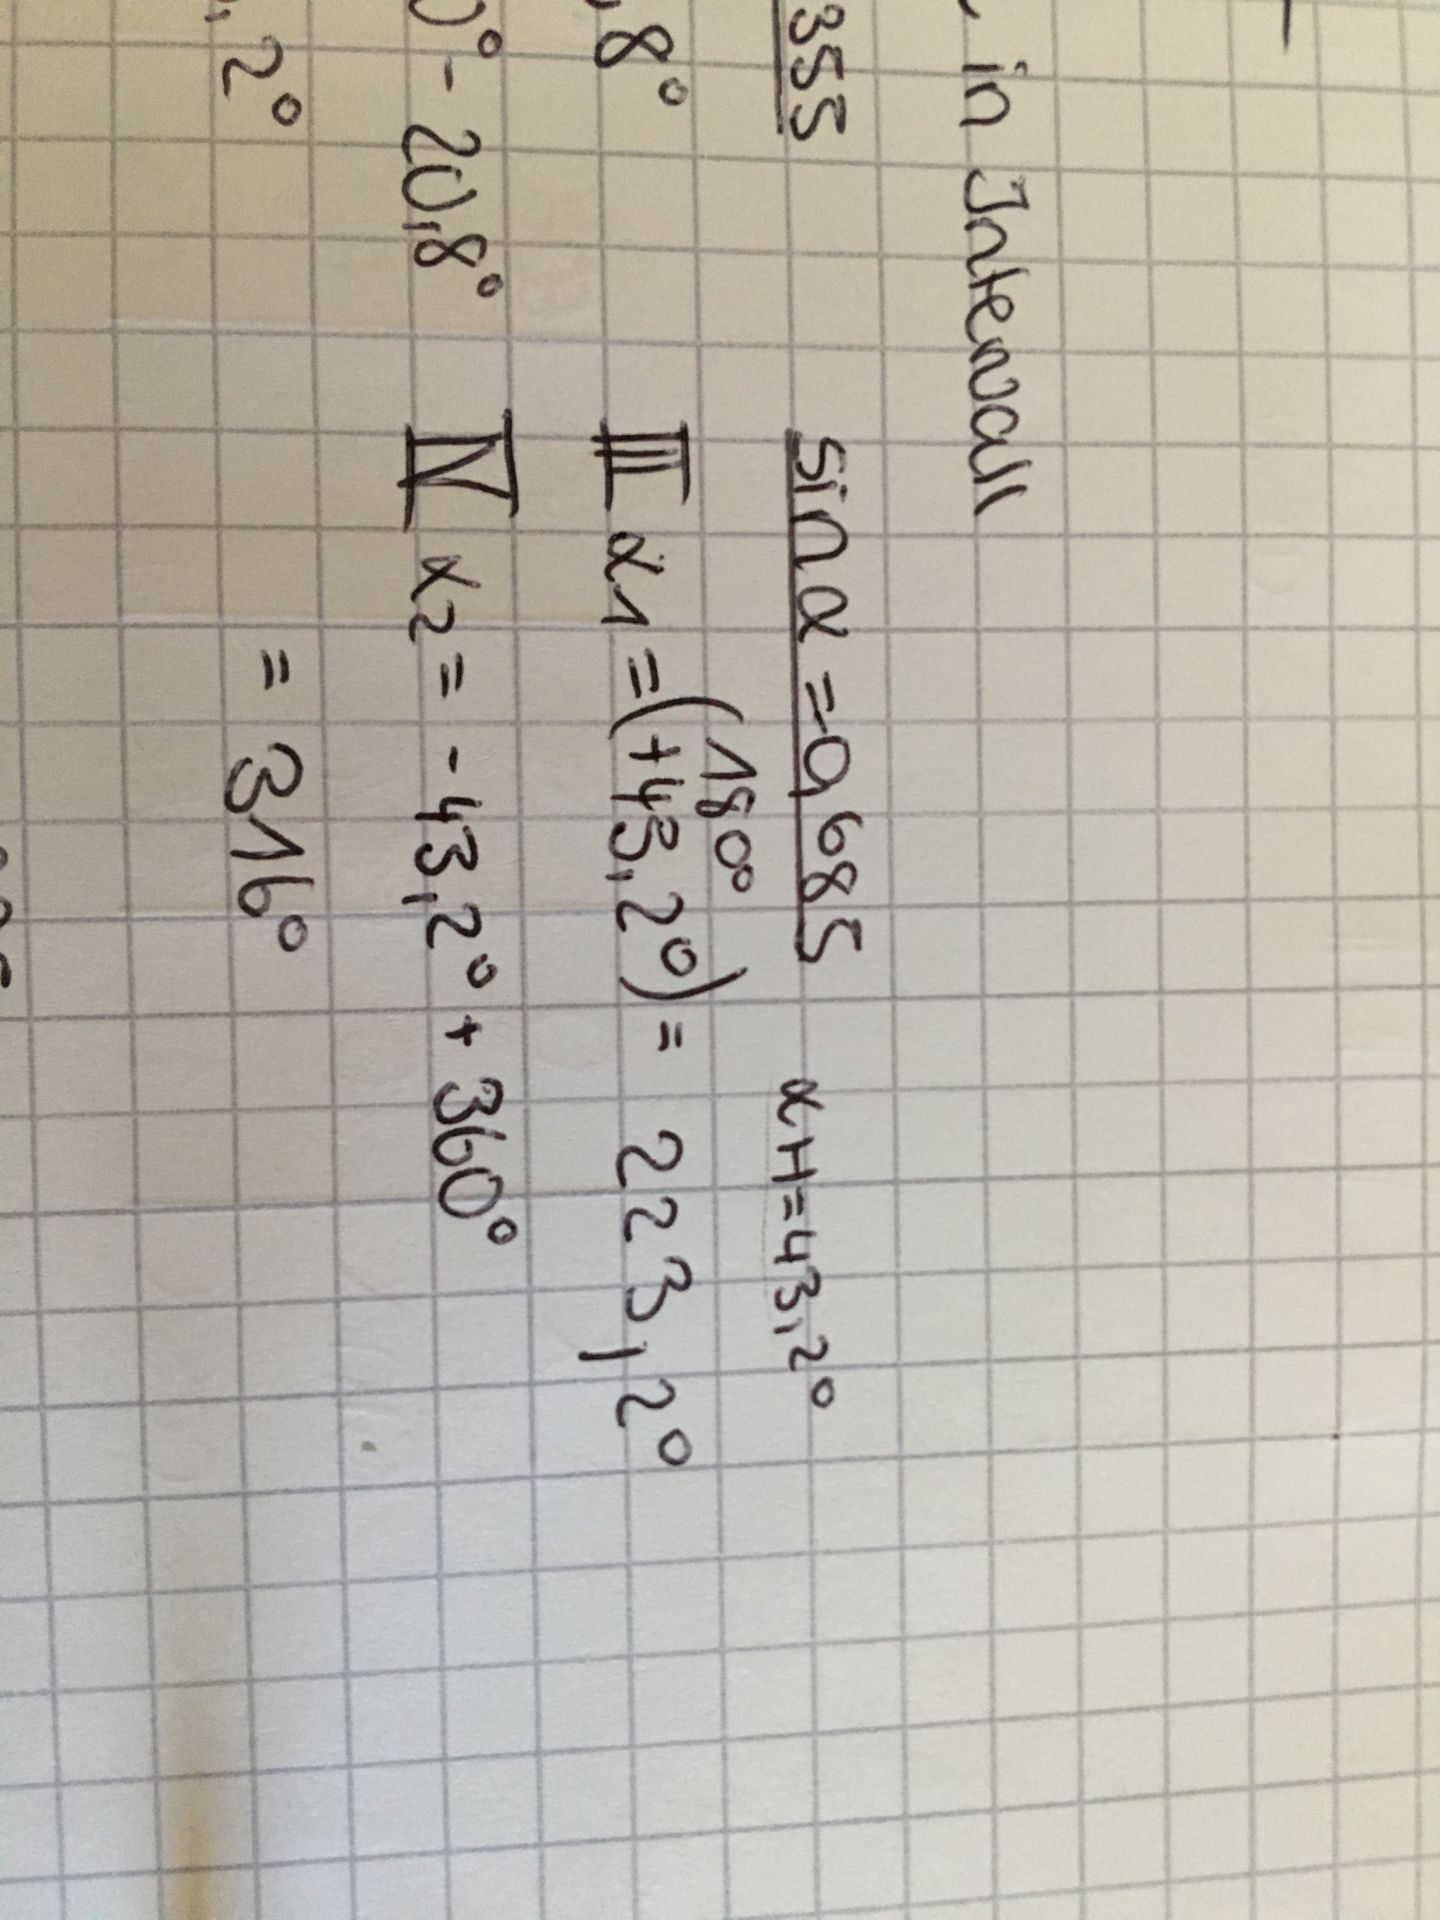 in Intervall
355
sin α = -0,685 αH = 43,2°
,8°
III α1 = (180° + 43,2°) = 223,2°
0° - 20,8°
IV α2 = - 43,2° + 360°
,2°
= 316°